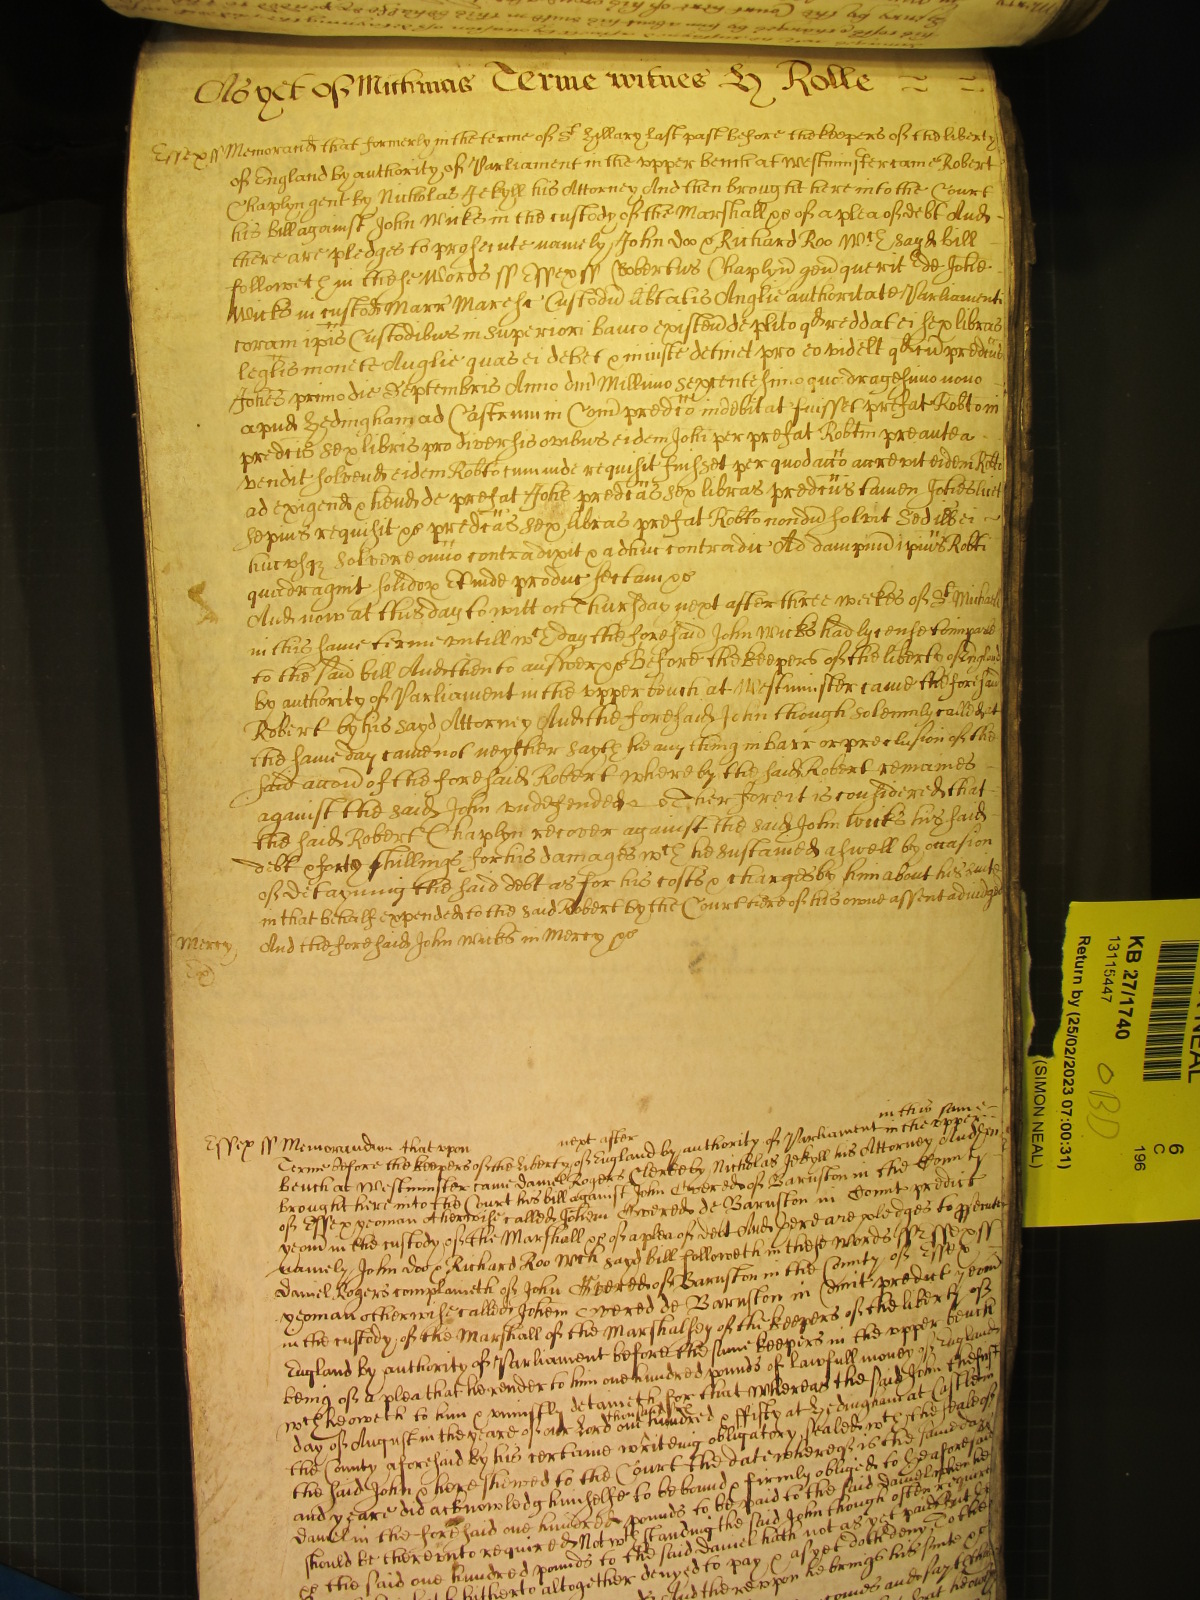 As yet of Mich'mas Terme witnes H Rolle
Essex ss Memorand that formerly in the terme of St Hillary last past before the keepers of the liberty
of England by authority of Parliament in the upper bench at Westminster came Robert
Chaplyn gent by Nicholas Jekyll his Attorney And then brought here into the Court
his bill against John Wicks in the custody of the Marshall &c of a plea of debt And
there are pledges to prosecute namely John Doo & Richard Roo Wch sayd bill
followeth in these Words ss Essex ss Robertus Chaplyn gen querit de Johe
Wicks in custod Marr Maresc Custodu libtatis Anglie authoritate Parliamenti
coram ipis Custodibus in superiori banco existen de plito qd reddat ei sex libras
leglis monete Anglie quas ei debet & iniuste detinet pro eo videlt qd cu predcus
Johes primo die Septembris Anno dni Millimo sexcentesimo quadragesimo nono
apud Hedingham ad Castrum in Com predco indebitat fuisset prefat Robto in
predcis sex libris pro diversis ovibus eidem Johi per prefat Robtm preantea
vendit solvend eidem Robto cum inde requisit fuisset per quod acco accrevit eidem Robto
ad exigend & hend de prefat Johe predcas sex libras predcus tamen Johes licet
sepius requisit &c predcas sex libras prefat Robto nondu solvit Sed ill ei
huc usq solvere omino contradixit & adhuc contradic Ad dampnu ipius Robti
quadragint solidoz Et inde produc sectam &c
And now at this day to witt on Thursday next after three weekes of St Michaell
in this same terme untill wch day the foresaid John Wicks had lycense to imparle
to the said bill And then to answer &c Before the keepers of the liberty of England
by authority of Parliament in the upper bench at Westminster came the foresaid
Robert by his sayd Attorney And the foresaid John though solemnly called at
the same day came not neyther sayth he any thing in barr or preclusion of the
said accon of the foresaid Robert whereby the said Robert remaines
against the said John undefended Therefore it is considered that
the said Robert Chaplyn recover against the said John Wicks his said
debt & forty shillings for his damages wch he sustained aswell by occasion
of detayning the said debt as for his costs & charges by him about his suite
in that behalf expended to the said Robert by the Court here of his owne assent adiudged
Mercy And the foresaid John Wicks in Mercy &c
Essex ss Memorandum that upon next after in this same
Terme before the keepers of the liberty of England by authority of Parliament in the upper
bench at Westminster came Daniel Rogers Clerke by Nicholas Jekyll his Attorney And
brought here into the Court his bill against John of Barnston in the County
of Essex yeoman otherwise called Johem de Barnston in Comit predict
yeom in the custody of the Marshall &c of a plea of debt And there are pledges to prosecute
namely John Doo & Richard Roo Wch sayd bill followeth in these words ss Essex ss
Daniel Rogers complaineth of John of Barnston in the County of Essex
yeoman otherwise called Johem de Barnston in Comit predict yeom
in the custody of the Marshall of the Marshalsey of the keepers of the liberty of
England by authority of Parliament before the same keepers in the upper bench
being of a plea that he render to him one hundred pounds of lawfull money of England
wch he oweth to him & uniustly detaineth for that Whereas the said John the first
day of August in the yeare of our Lord one thousand six hundred & fifty at Hedingham at Castle in
the County aforesaid by his certaine writeing obligatory sealed wth the seale of
the said John & here shewed to the Court the date whereof is the same day
and yeare did acknowledg himselfe to be bound & firmly obliged to the aforesaid
Daniel in the foresaid one hundred pounds to be paid to the said Daniel when he
should be thereunto required Notwthstanding the said John though often required
&c the said one hundred pounds to the said Daniel hath not as yet paid but
hitherto altogether denyed to pay & as yet doth deny To the
And thereupon he brings his suite &c
comes and sayth
KB 27/1740
13115447
Return by (25/02/2023 07:00:31)
(SIMON NEAL)
OBD
6
C
196
NEAL